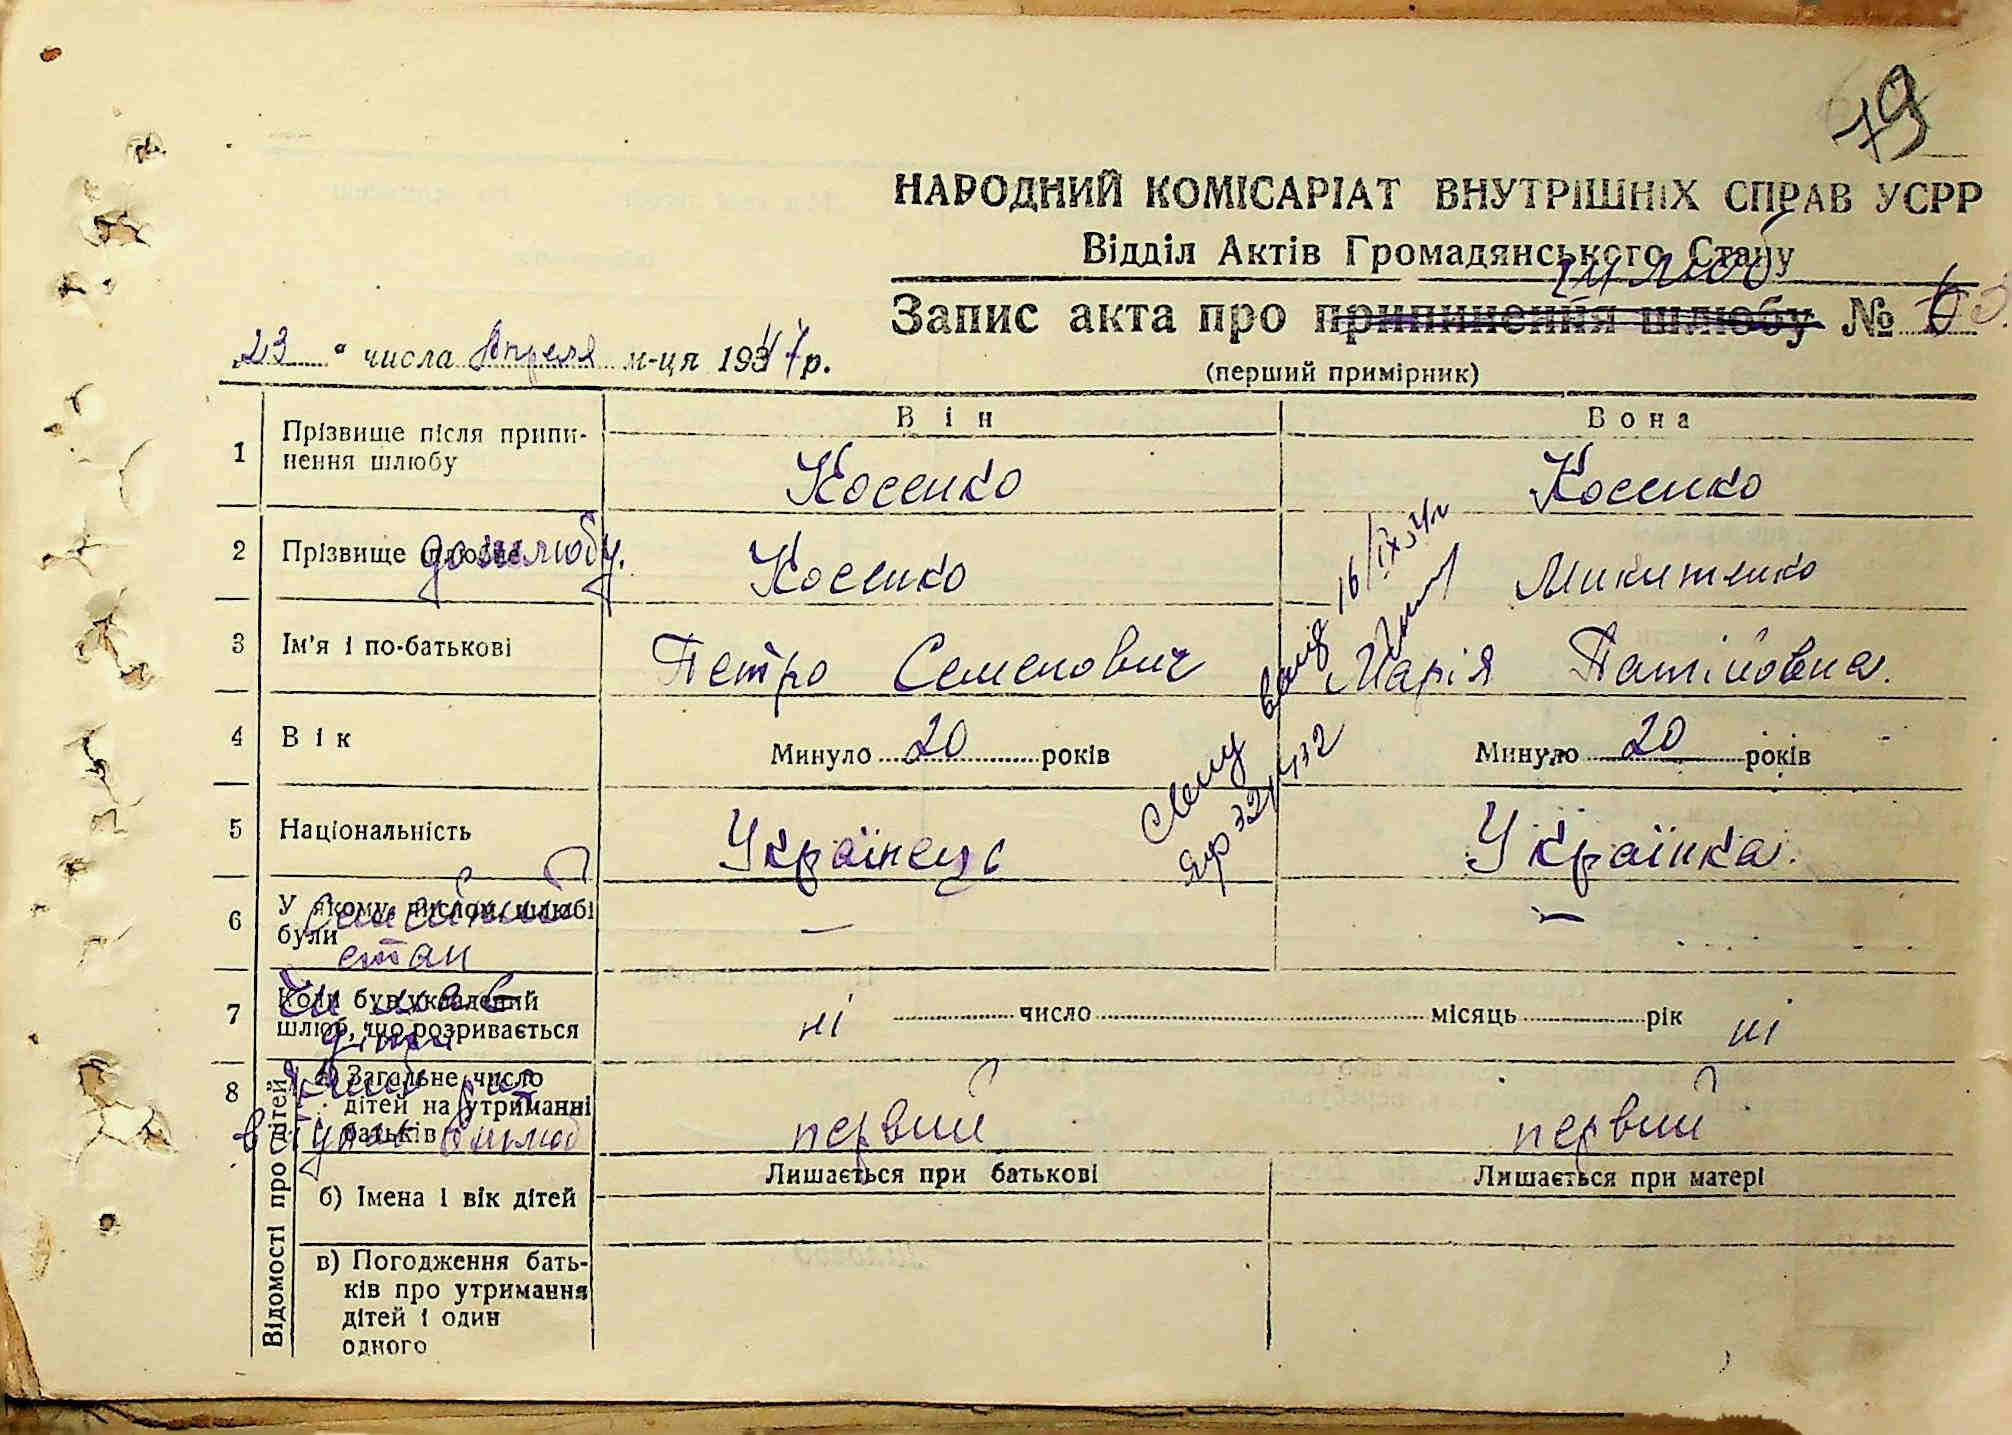 79
НАРОДНИЙ КОМІСАРІАТ ВНУТРІШНІХ СПРАВ УСРР
Відділ Актів Громадянського Стану
шлюб
Запис акта про припинення шлюбу № 63.
„23“ числа Апреля м-ця 1947 р.
(перший примірник)
Він Вона
1 Прізвище після припи-
нення шлюбу
Косенко Косенко
2 Прізвище до шлюбу. Косенко Микитенко
3 Ім'я і по-батькові Петро Семенович Марія Патіївна.
4 Вік Минуло 20 років Минуло 20 років
5 Національність Українець Українка.
16/IX 54 г
ЯР 321432
6 У якому числом шлюбі
були
Семейний
стан
— —
7 Коли був укладений
шлюб, що розривається
Чи має
діти
ні число місяць рік ні
8 Відомості про дітей
а) Загальне число
дітей на утриманні
батьків
Який раз
вступає в шлюб
первий первий
Лишається при батькові Лишається при матері
б) Імена і вік дітей
в) Погодження бать-
ків про утримання
дітей і один
одного